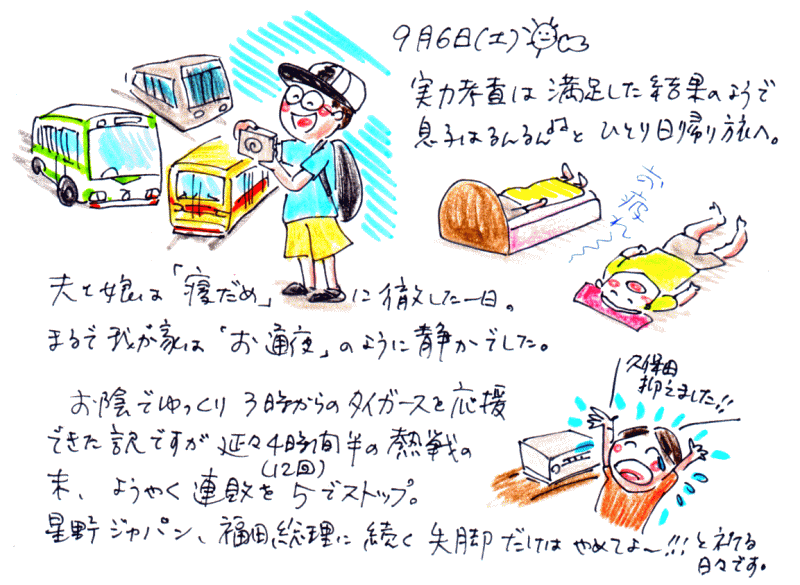 9月6日(土)
実力考査は満足した結果のようで
息子はるんるん♪♪と ひとり日帰り旅へ。
夫と娘は「寝だめ」に徹した一日。
まるで我が家は「お通夜」のように静かでした。
お陰でゆっくり 3時からのタイガースを応援
できた訳ですが 延々4時間半の熱戦の
(12回)
末、ようやく連敗を5でストップ。
久保田
抑えました!!
星野ジャパン、福田総理に続く失脚だけはやめてよ〜!!!と祈る
日々です。